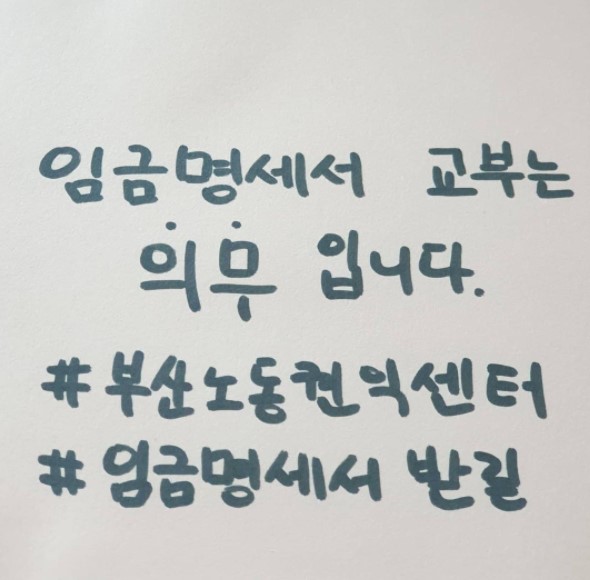 임금명세서 교부는
의무 입니다.
#부산노동권익센터
#임금명세서 반길